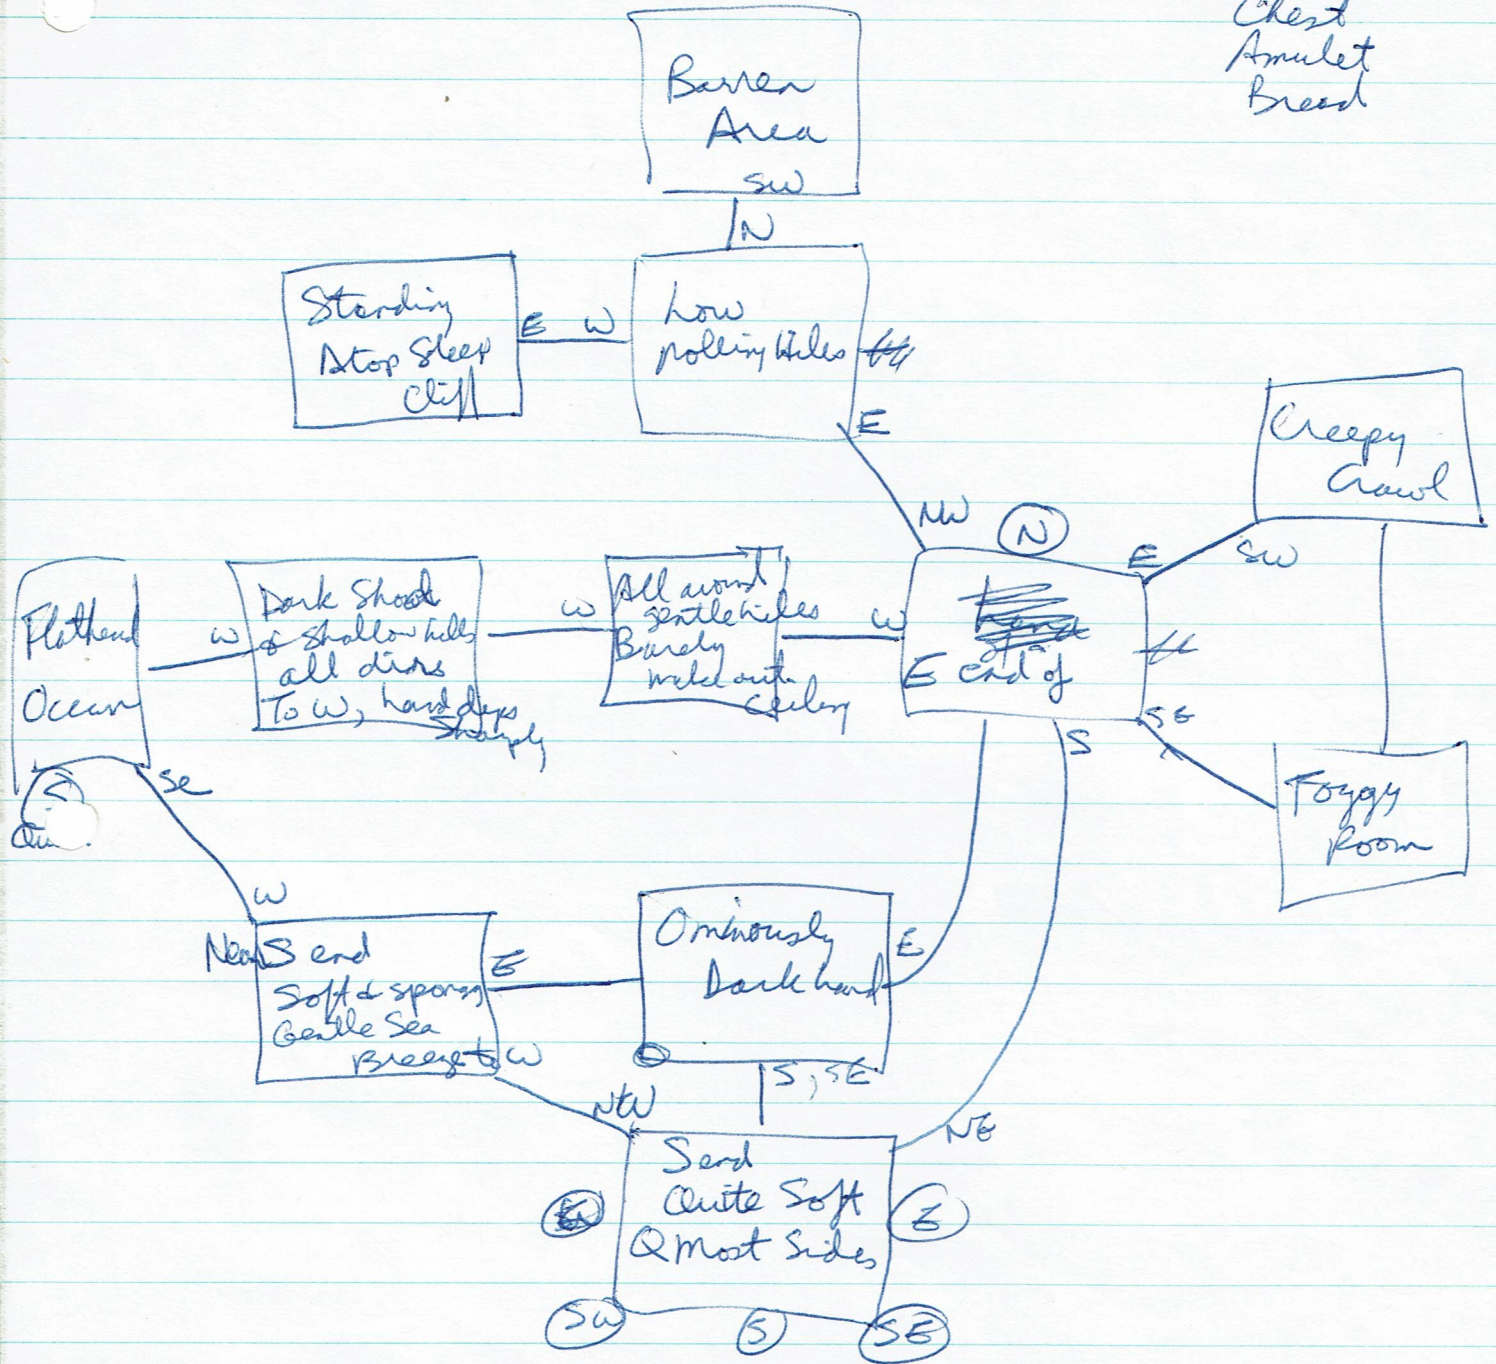 Chest
Amulet
Bread
Barren
Area
SW
N
Standing
Atop Steep
Cliff
E W
Low
Rolling Hills
E
Creepy
Crawl
SW
NW
N
E
Flathead
Ocean
W
Dark Shoot
& Shallow hills
all dirs
To W, land drops
Sharply
W
All around
gentle hills
Barely
make out
Ceiling
W
E end of
SE
S
Foggy
Room
SE
W
Near S end
Soft & spongy
Gentle Sea
Breeze to W
E
Ominously
Dark land
E
S, SE
NW
NE
S end
Quite Soft
Q Most Sides
E
SW
S
SE